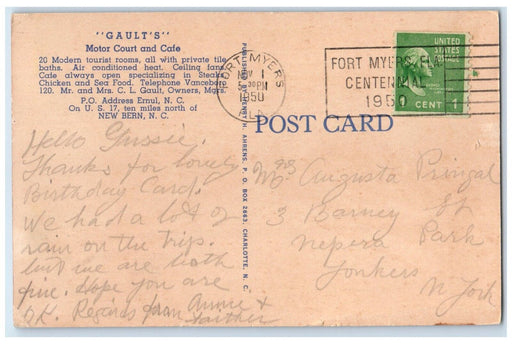 "GAULT'S"
Motor Court and Cafe
20 Modern tourist rooms, all with private tile
baths. Air conditioned heat. Ceiling fans.
Cafe always open specializing in Steaks,
Chicken and Sea Food. Telephone Vanceboro
120. Mr. and Mrs. C. L. Gault, Owners, Mgrs.
P.O. Address Ernul, N. C.
On U. S. 17, ten miles north of
NEW BERN, N. C.
Hello Gussie.
Thanks for lovely
Birthday Card.
We had a lot of
rain on the trip.
but we are both
fine. Hope you are
O.K. Regards from Annie &
PUBLISHED BY HENRY H. AHRENS, P. O. BOX 2663, CHARLOTTE, N. C.
FORT MYERS
NOV 1
PM
1950
FLA
FORT MYERS, FLA
CENTENNIAL
1950
UNITED
STATES
POSTAGE
1 CENT 1
POST CARD
Mrs Augusta Pringal
3 Barney St
Nepera Park
Yonkers
N York